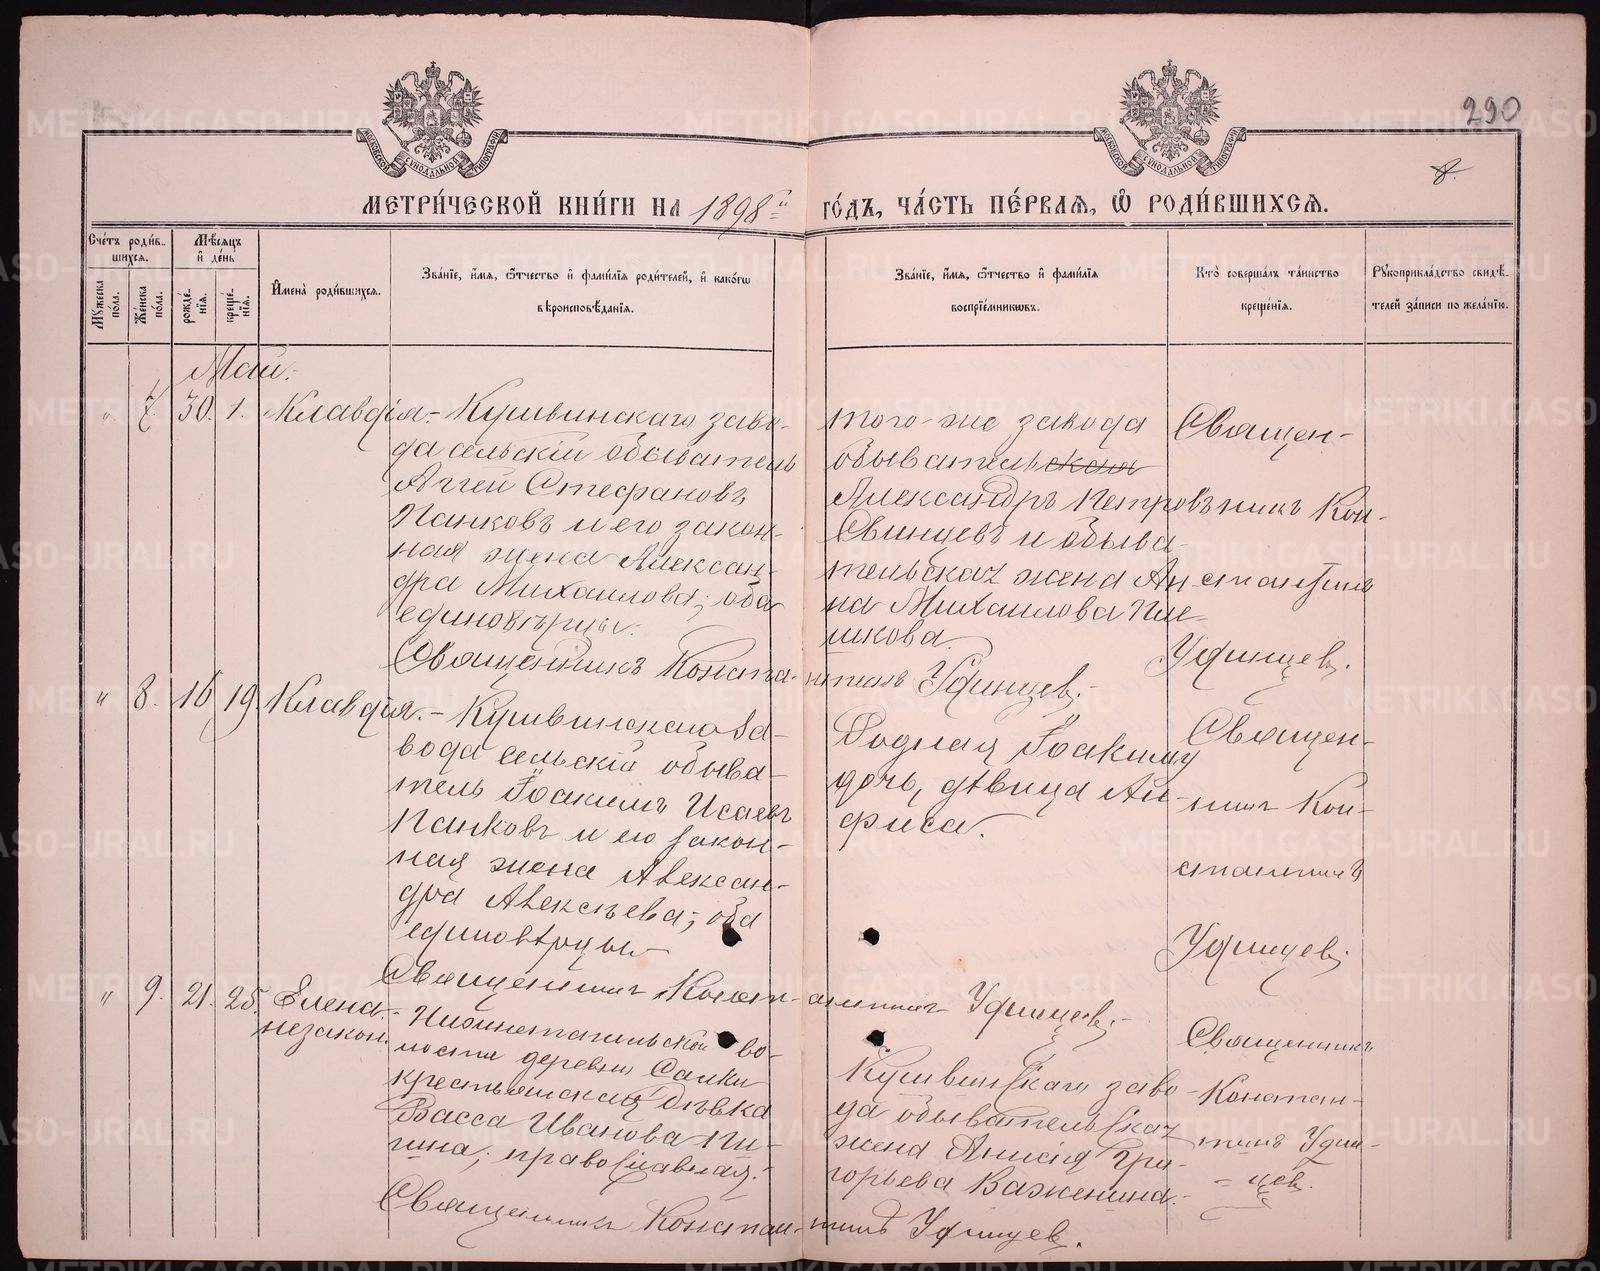 290
8.
МОСКОВСКОЙ СѴНОДАЛЬНОЙ ТИПОГРАФІИ
МОСКОВСКОЙ СѴНОДАЛЬНОЙ ТИПОГРАФІИ
МЕТРИ́ЧЕСКОЙ КНИ́ГИ НА 1898й
ГО́ДЪ, ЧА́СТЬ ПЕ́РВАЯ, Ѽ РОДИ́ВШИХСЯ.
Сче́тъ роди́в-шихся.
Му́жеска по́ла.
Же́нска по́ла.
Мѣ́сяцъ и де́нь
рожде́-нїя.
креще́-нїя.
И́мена роди́вшихся.
Зва́нїе, и́мя, ѻ́тчество и фами́лїя роди́телей, и како́гѡ
вѣроисповѣ́данїя.
Зва́нїе, и́мя, ѻ́тчество и фами́лїя
воспрїе́мникѡвъ.
Кто̀ соверша́лъ та́инство
креще́нїя.
Рꙋкоприкла́дство свидѣ́-
телей за́писи по жела́нїю.
Май.
" 7. 30. 1. Клавдія. - Кушвинскаго заво-
да сельскій обыватель
Аггей Стефановъ
Панковъ и его закон-
ная жена Алексан-
дра Михаилова; оба
единовѣрцы.
того-же завода
обыватель
Александръ Петровъ
Свинцевъ и обыва-
тельская жена Ан-
на Михаилова
Священ-
никъ Кон-
стантинъ
Уфинцев.
Священникъ Константинъ Уфинцев. -
" 8. 16. 19. Клавдія. - Кушвинскаго за-
вода сельскій обыва-
тель Іоакимъ Исаевъ
Панковъ и его закон-
ная жена Алексан-
дра Алексѣева; оба
единовѣрцы
Родная Іоакиму
дочь, дѣвица Ан-
фиса.
Священ-
никъ Кон-
стантинъ
Уфинцев.
Священникъ Константинъ Уфинцев. -
" 9. 21. 25. Елена. -
незакон.
во-
лости деревни Салки
крестьянская дѣвка
Васса Иванова Пи-
гина; православная. -
Кушвинскаго заво-
да обывательская
жена Анисія Гри-
горьева Важенина. -
Священникъ
Констан-
тинъ Уфин-
- цев.
Священникъ Константинъ Уфинцев.